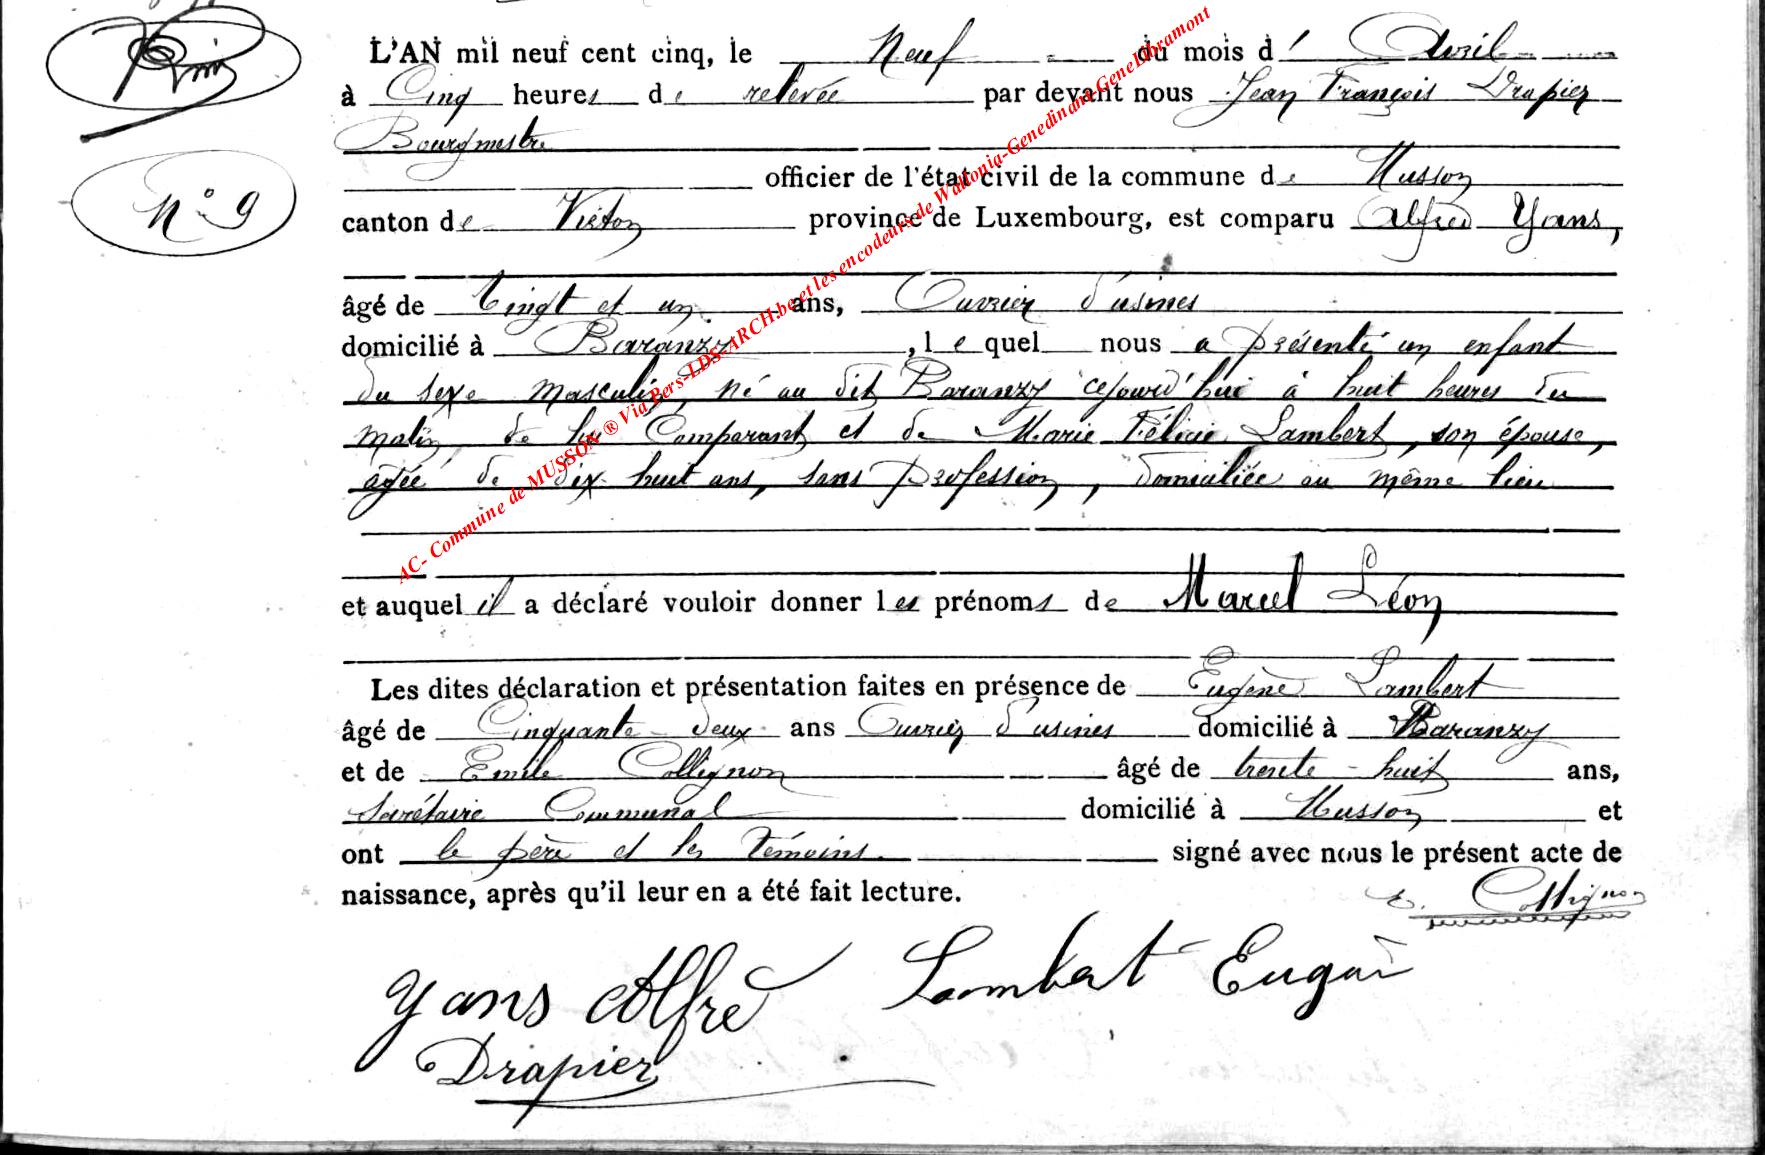 L'AN mil neuf cent cinq, le Neuf du mois d' Avril
à Cinq heures de relevée par devant nous Jean François Drapier
Bourgmestre
officier de l'état civil de la commune de Musson
N° 9
canton de Virton province de Luxembourg, est comparu Alfred Yans,
âgé de Vingt et un ans, Ouvrier d'usines
domicilié à Baranzy, le quel nous a présenté un enfant
du sexe masculin, né au dit Baranzy cejourd'hui à huit heures du
matin, de lui Comparant et de Marie Félicie Lambert, son épouse,
agée de dix huit ans, sans profession, domiciliée au même lieu
et auquel il a déclaré vouloir donner les prénoms de Marcel Léon
Les dites déclaration et présentation faites en présence de Eugène Lambert
âgé de Cinquante deux ans Ouvrier d'usines domicilié à Baranzy
et de Emile Collignon âgé de trente-huit ans,
Secrétaire Communal domicilié à Musson et
ont le père et les témoins signé avec nous le présent acte de
naissance, après qu'il leur en a été fait lecture.
E. Collignon
Yans Alfred Lambert Eugène
Drapier
AC- Commune de MUSSON ® Via Bers-LDS-ARCH.be et les encodeurs de Wallonia-Genedinant-Genelibramont